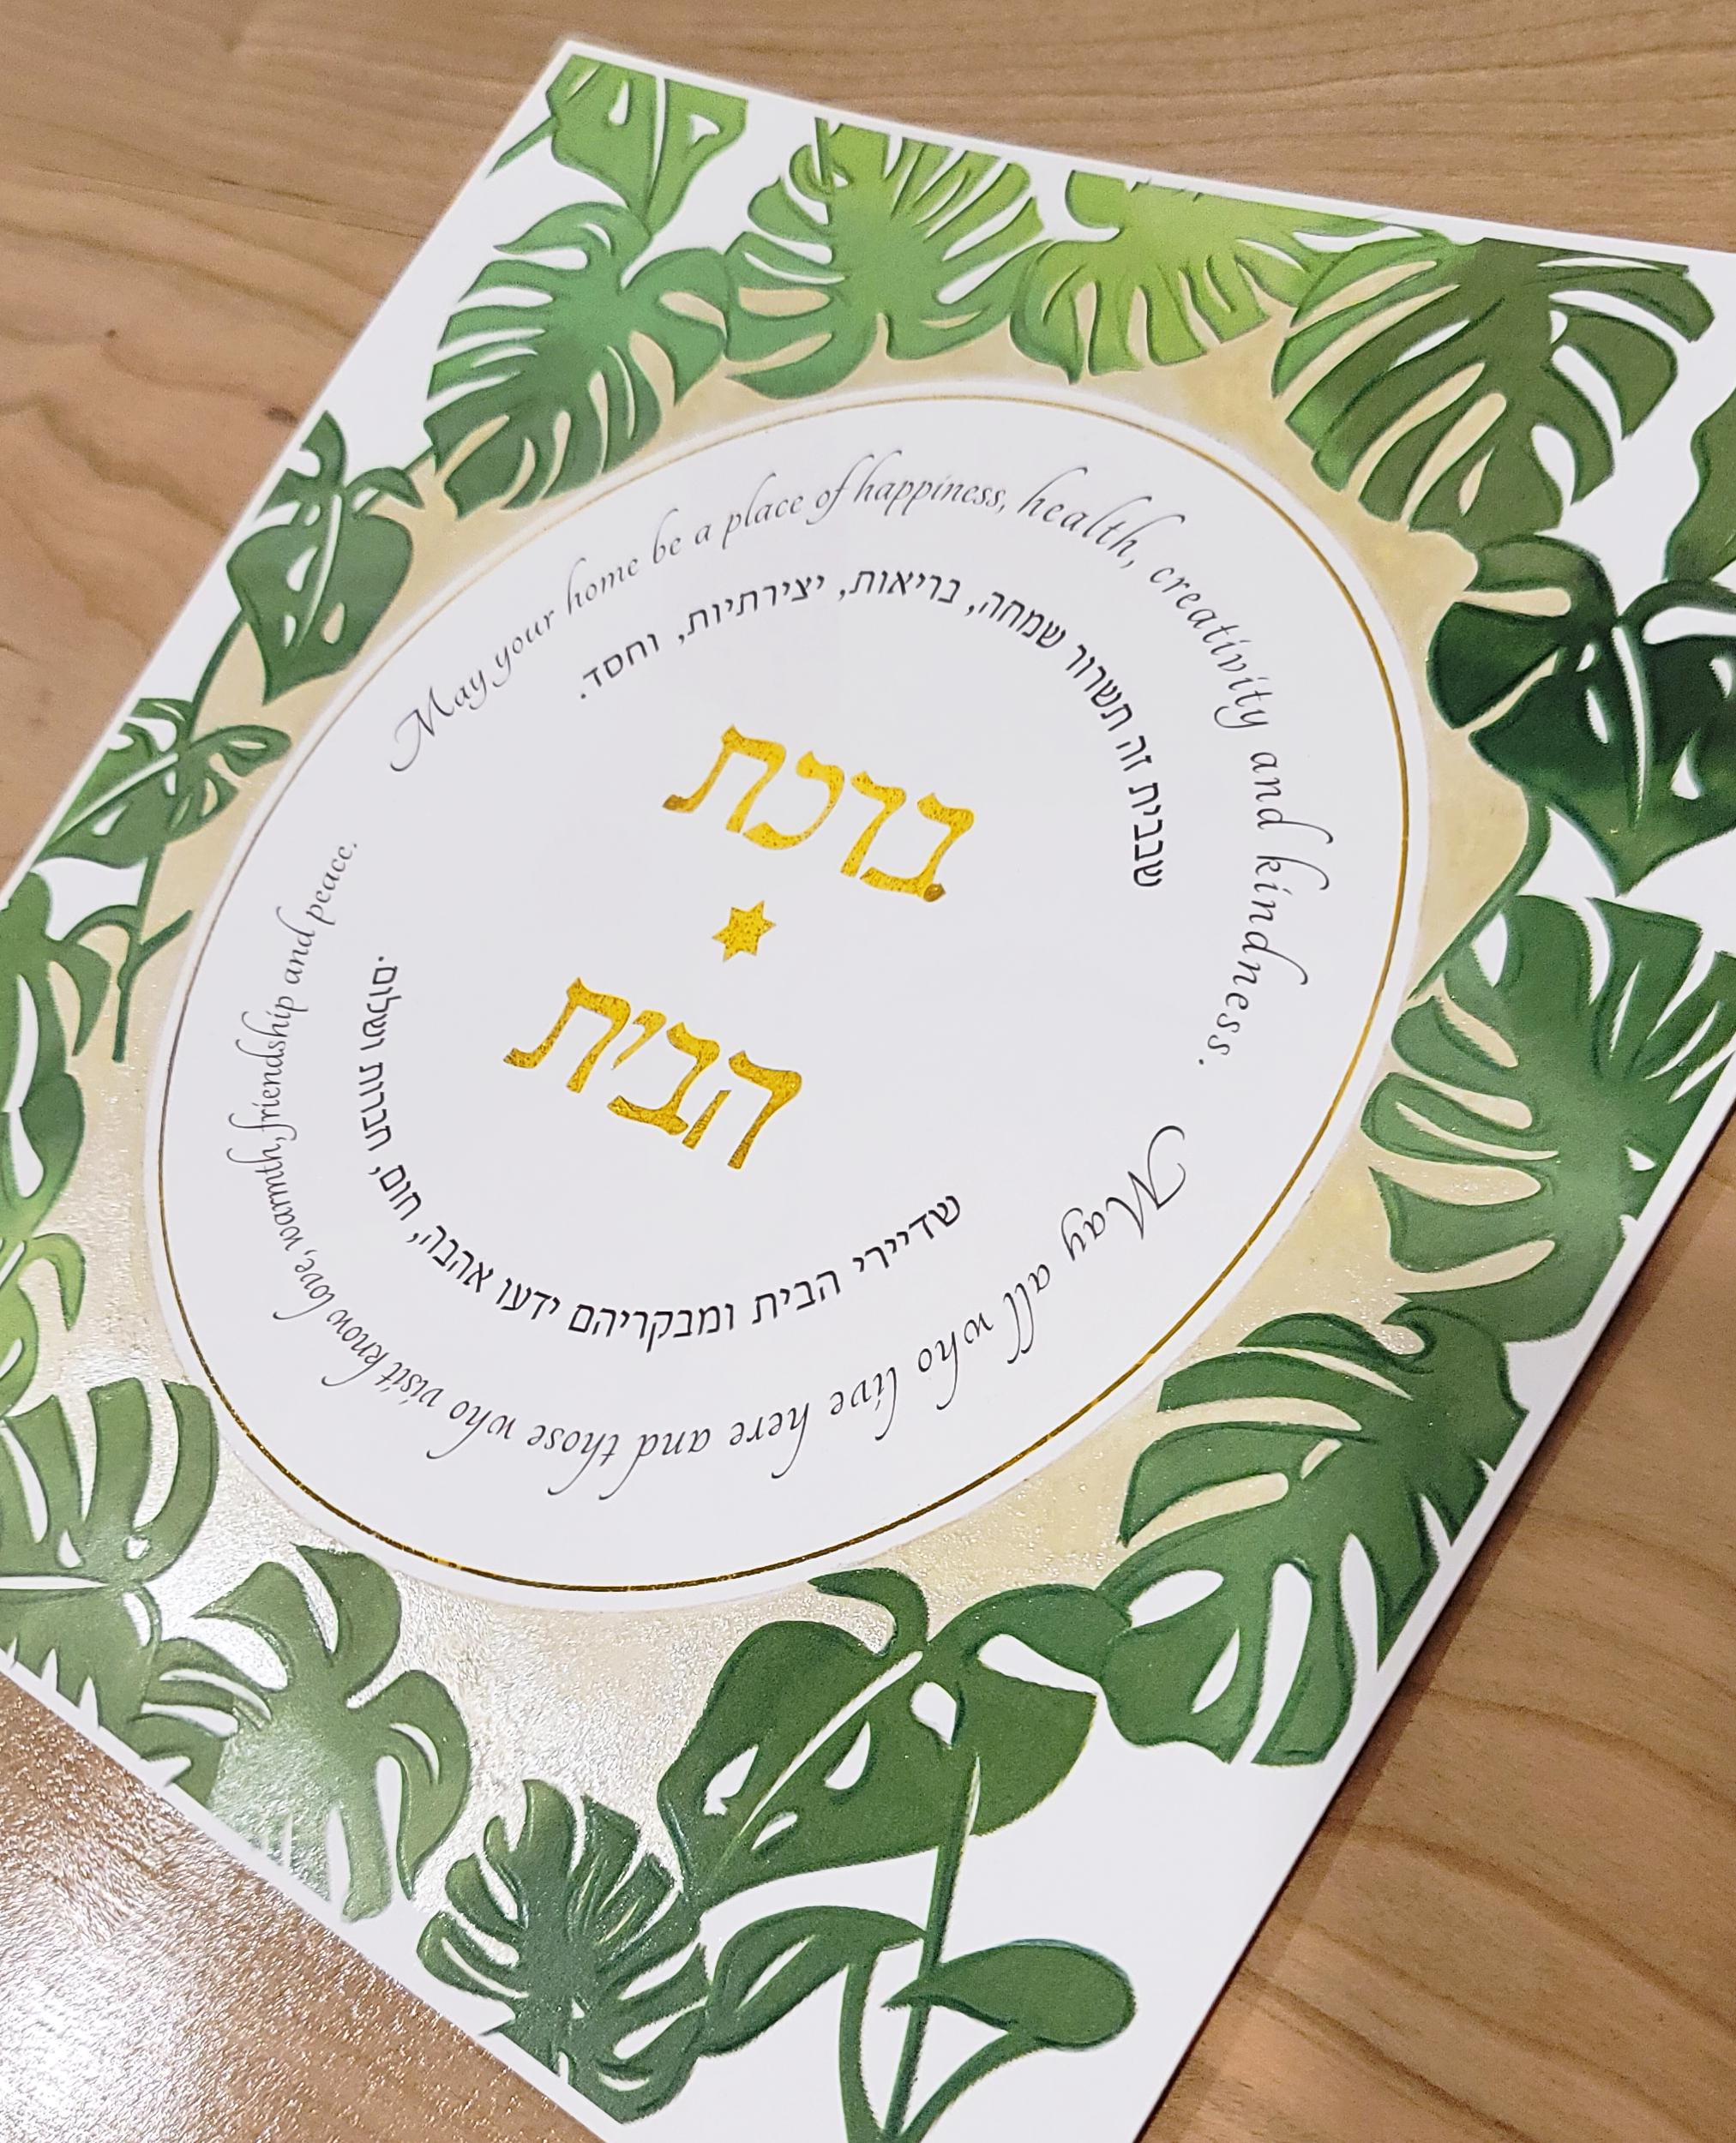 May your home be a place of happiness, health, creativity and kindness.
שבבית זה תשרור שמחה, בריאות, יצירתיות, וחסד.
ברכת
הבית
שדיירי הבית ומבקריהם ידעו אהבה, חום, חברות ושלום.
May all who live here and those who visit know love, warmth, friendship and peace.